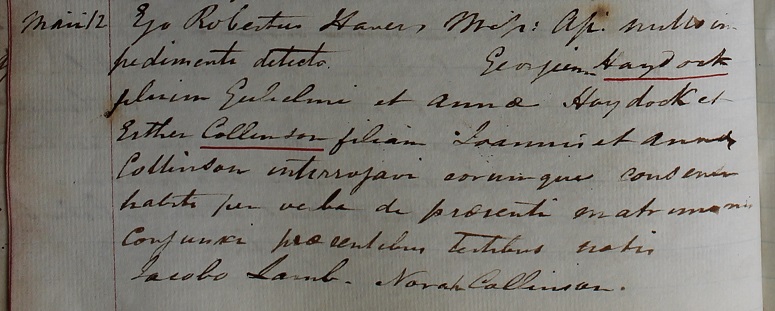 Maii 12 Ego Robertus Haver, Miss: Ap. nullo im
pedimento detecto. Georgium Haydock
filium Gulielmi et Annæ Haydock et
Esther Collinson filiam Joannis et Annæ
Collinson interrogavi eorumque consensu
habito per verba de præsenti matrimonio
conjunxi præsentibus testibus notis
Jacobo Lamb - Norah Collinson.